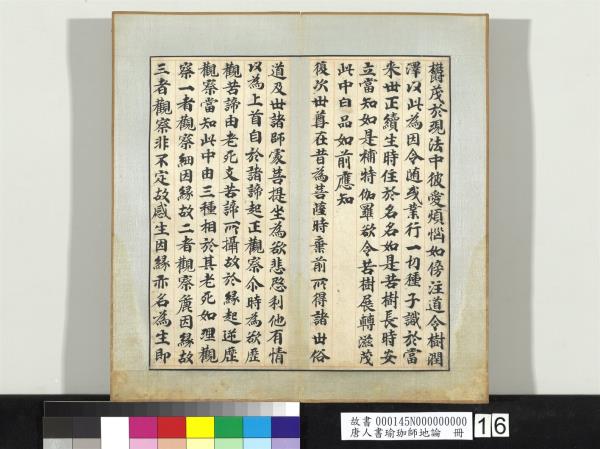 欝茂於現法中彼愛煩惱如傍注道令樹潤
澤以此為因令随或業行一切種子識於當
来世正續生時任於名名如是苦樹長時安
立當知如是補特伽羅欲令苦樹展轉滋茂
此中白品如前應知
復次世尊在昔為菩薩時棄前所得諸世俗
道及世諸師處菩提坐為欲悲愍利他有情
以為上首自於諸諦起正觀察尒時為欲歷
觀苦諦由老死支苦諦所攝故於緣起逆歷
觀察當知此中由三種相於其老死如理觀
察一者觀察細因緣故二者觀察麁因緣故
三者觀察非不定故感生因緣亦名為生即
故書 000145N000000000
唐人書瑜珈師地論 冊
16